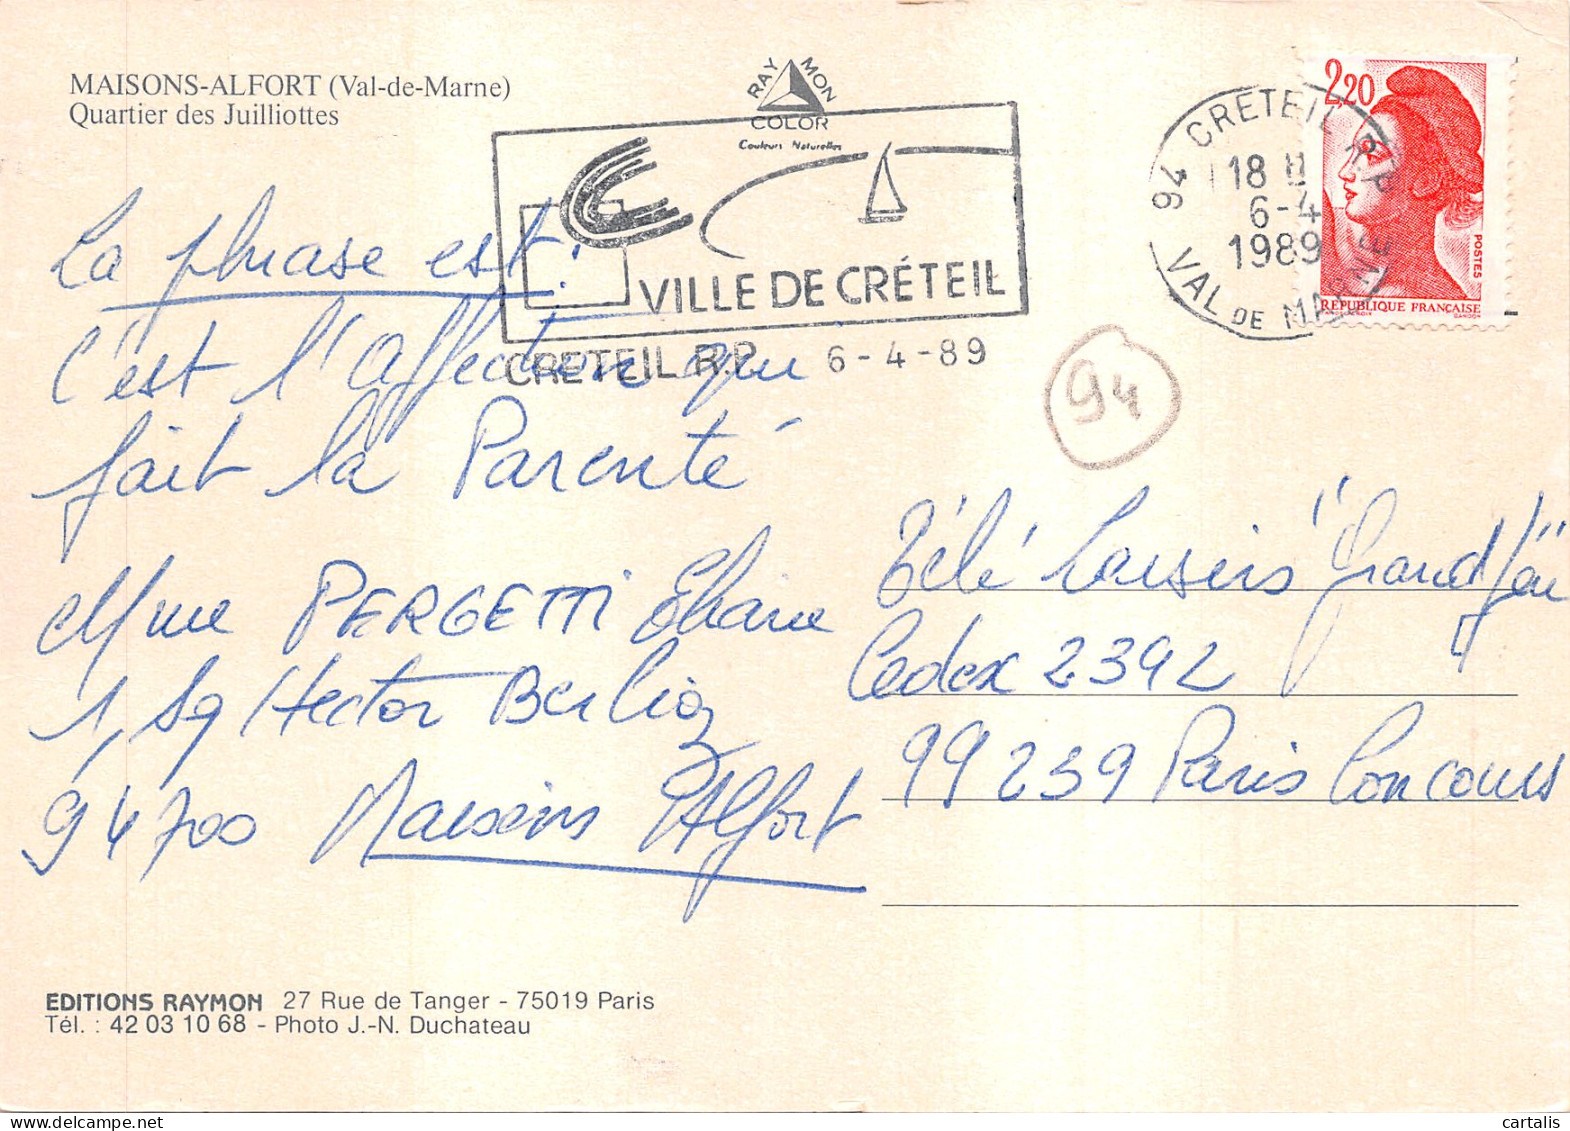 MAISONS-ALFORT (Val-de-Marne)
Quartier des Juilliottes
RAYMON
COLOR
Couleurs Naturelles
VILLE DE CRÉTEIL
CRETEIL R.P. 6-4-89
94 CRETEIL R.P.
18 H
6-4
1989
VAL DE MARNE
2,20
POSTES
RÉPUBLIQUE FRANÇAISE
94
La phrase est :
C'est l'affection qui
fait la Parenté
Mme PERGETTI Eliane
1, Sq Hector Berlioz
94700 Maisons Alfort
Télé Loisirs "Grand Jeu"
Cedex 2392
99239 Paris Concours
EDITIONS RAYMON 27 Rue de Tanger - 75019 Paris
Tél. : 42 03 10 68 - Photo J.-N. Duchateau
cartalis